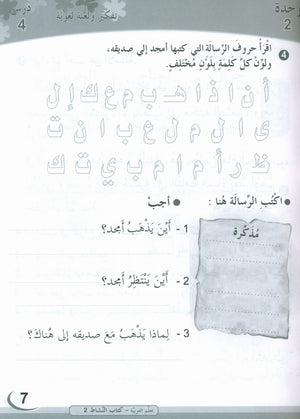 وحدة 2
درس 4
تفكير ولغة لغوية
4 اقْرَأْ حروفَ الرِّسالَةِ التي كتبها أمجد إلى صديقه،
ولَوِّنْ كلَّ كَلِمَةٍ بِلَوْنٍ مُخْتَلِفٍ.
أ ن ا ذ ا هـ ب م ع ك إ ل
ى ا ل م ل ع ب ا ن ت
ظ ر أ م ا م ب ي ت ك
● اكْتُبِ الرِّسالَةَ هُنا :
● أجِبْ :
مُذَكِّرة
1 - أَيْنَ يَذْهَبُ أمجد؟
2 - أَيْنَ يَنْتَظِرُ أَمجد؟
3 - لِماذا يَذْهَبُ مَعَ صديقه إلى هُناكَ؟
تعلم العربية - كتاب النشاط 2
7